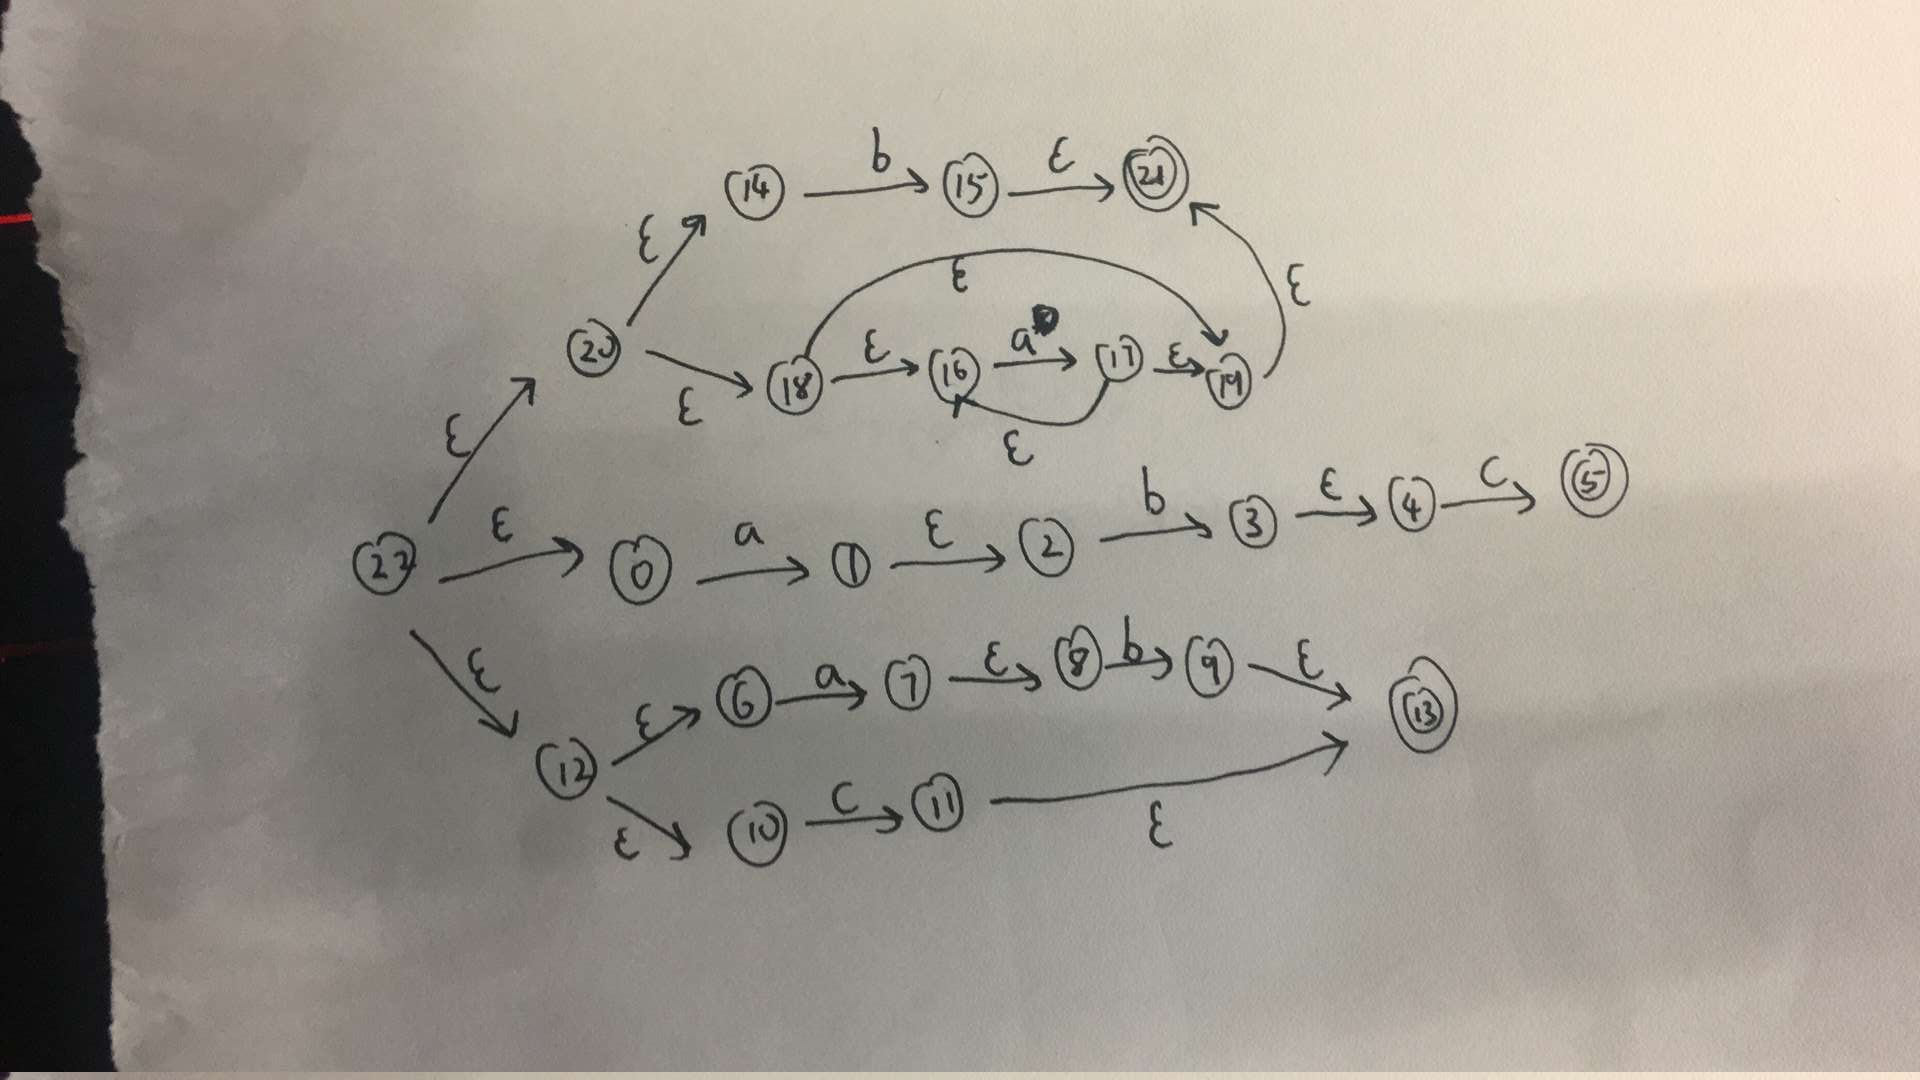 14 b 15 ε 21
ε
ε ε
20 18 ε 16 a 17 ε 19
ε ε
ε
22 ε 0 a 1 ε 2 b 3 ε 4 c 5
ε 6 a 7 ε 8 b 9 ε 13
ε
12
ε 10 c 11 ε